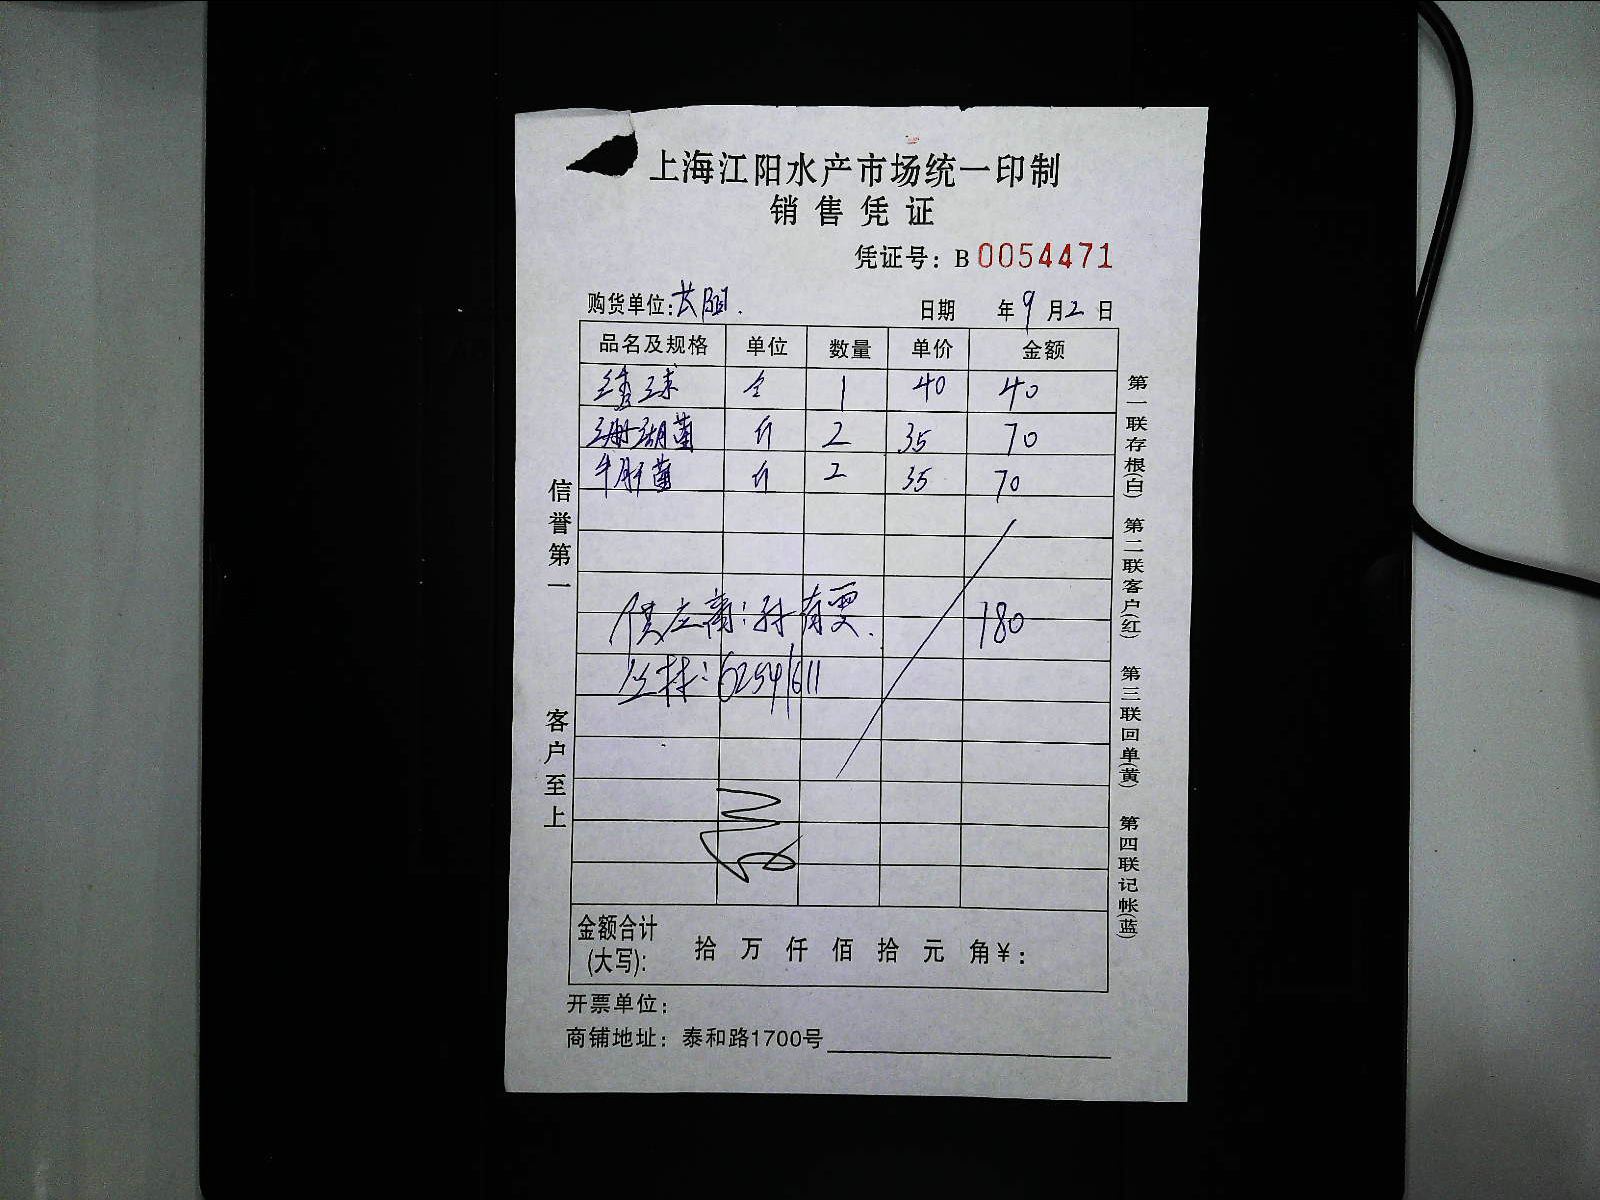 上海江阳水产市场统一印制
销售凭证
凭证号：B 0054471
购货单位：长阳
日期 年9月2日
品名及规格 单位 数量 单价 金额
绣球 1 40 40
珊瑚菌 斤 2 35 70
牛肝菌 斤 2 35 70
供应商：孙有
180
62541611
金额合计
(大写)： 拾 万 仟 佰 拾 元 角￥：
开票单位：
商铺地址：泰和路1700号
信誉第一
客户至上
第一联存根(白) 第二联客户(红) 第三联回单(黄) 第四联记帐(蓝)